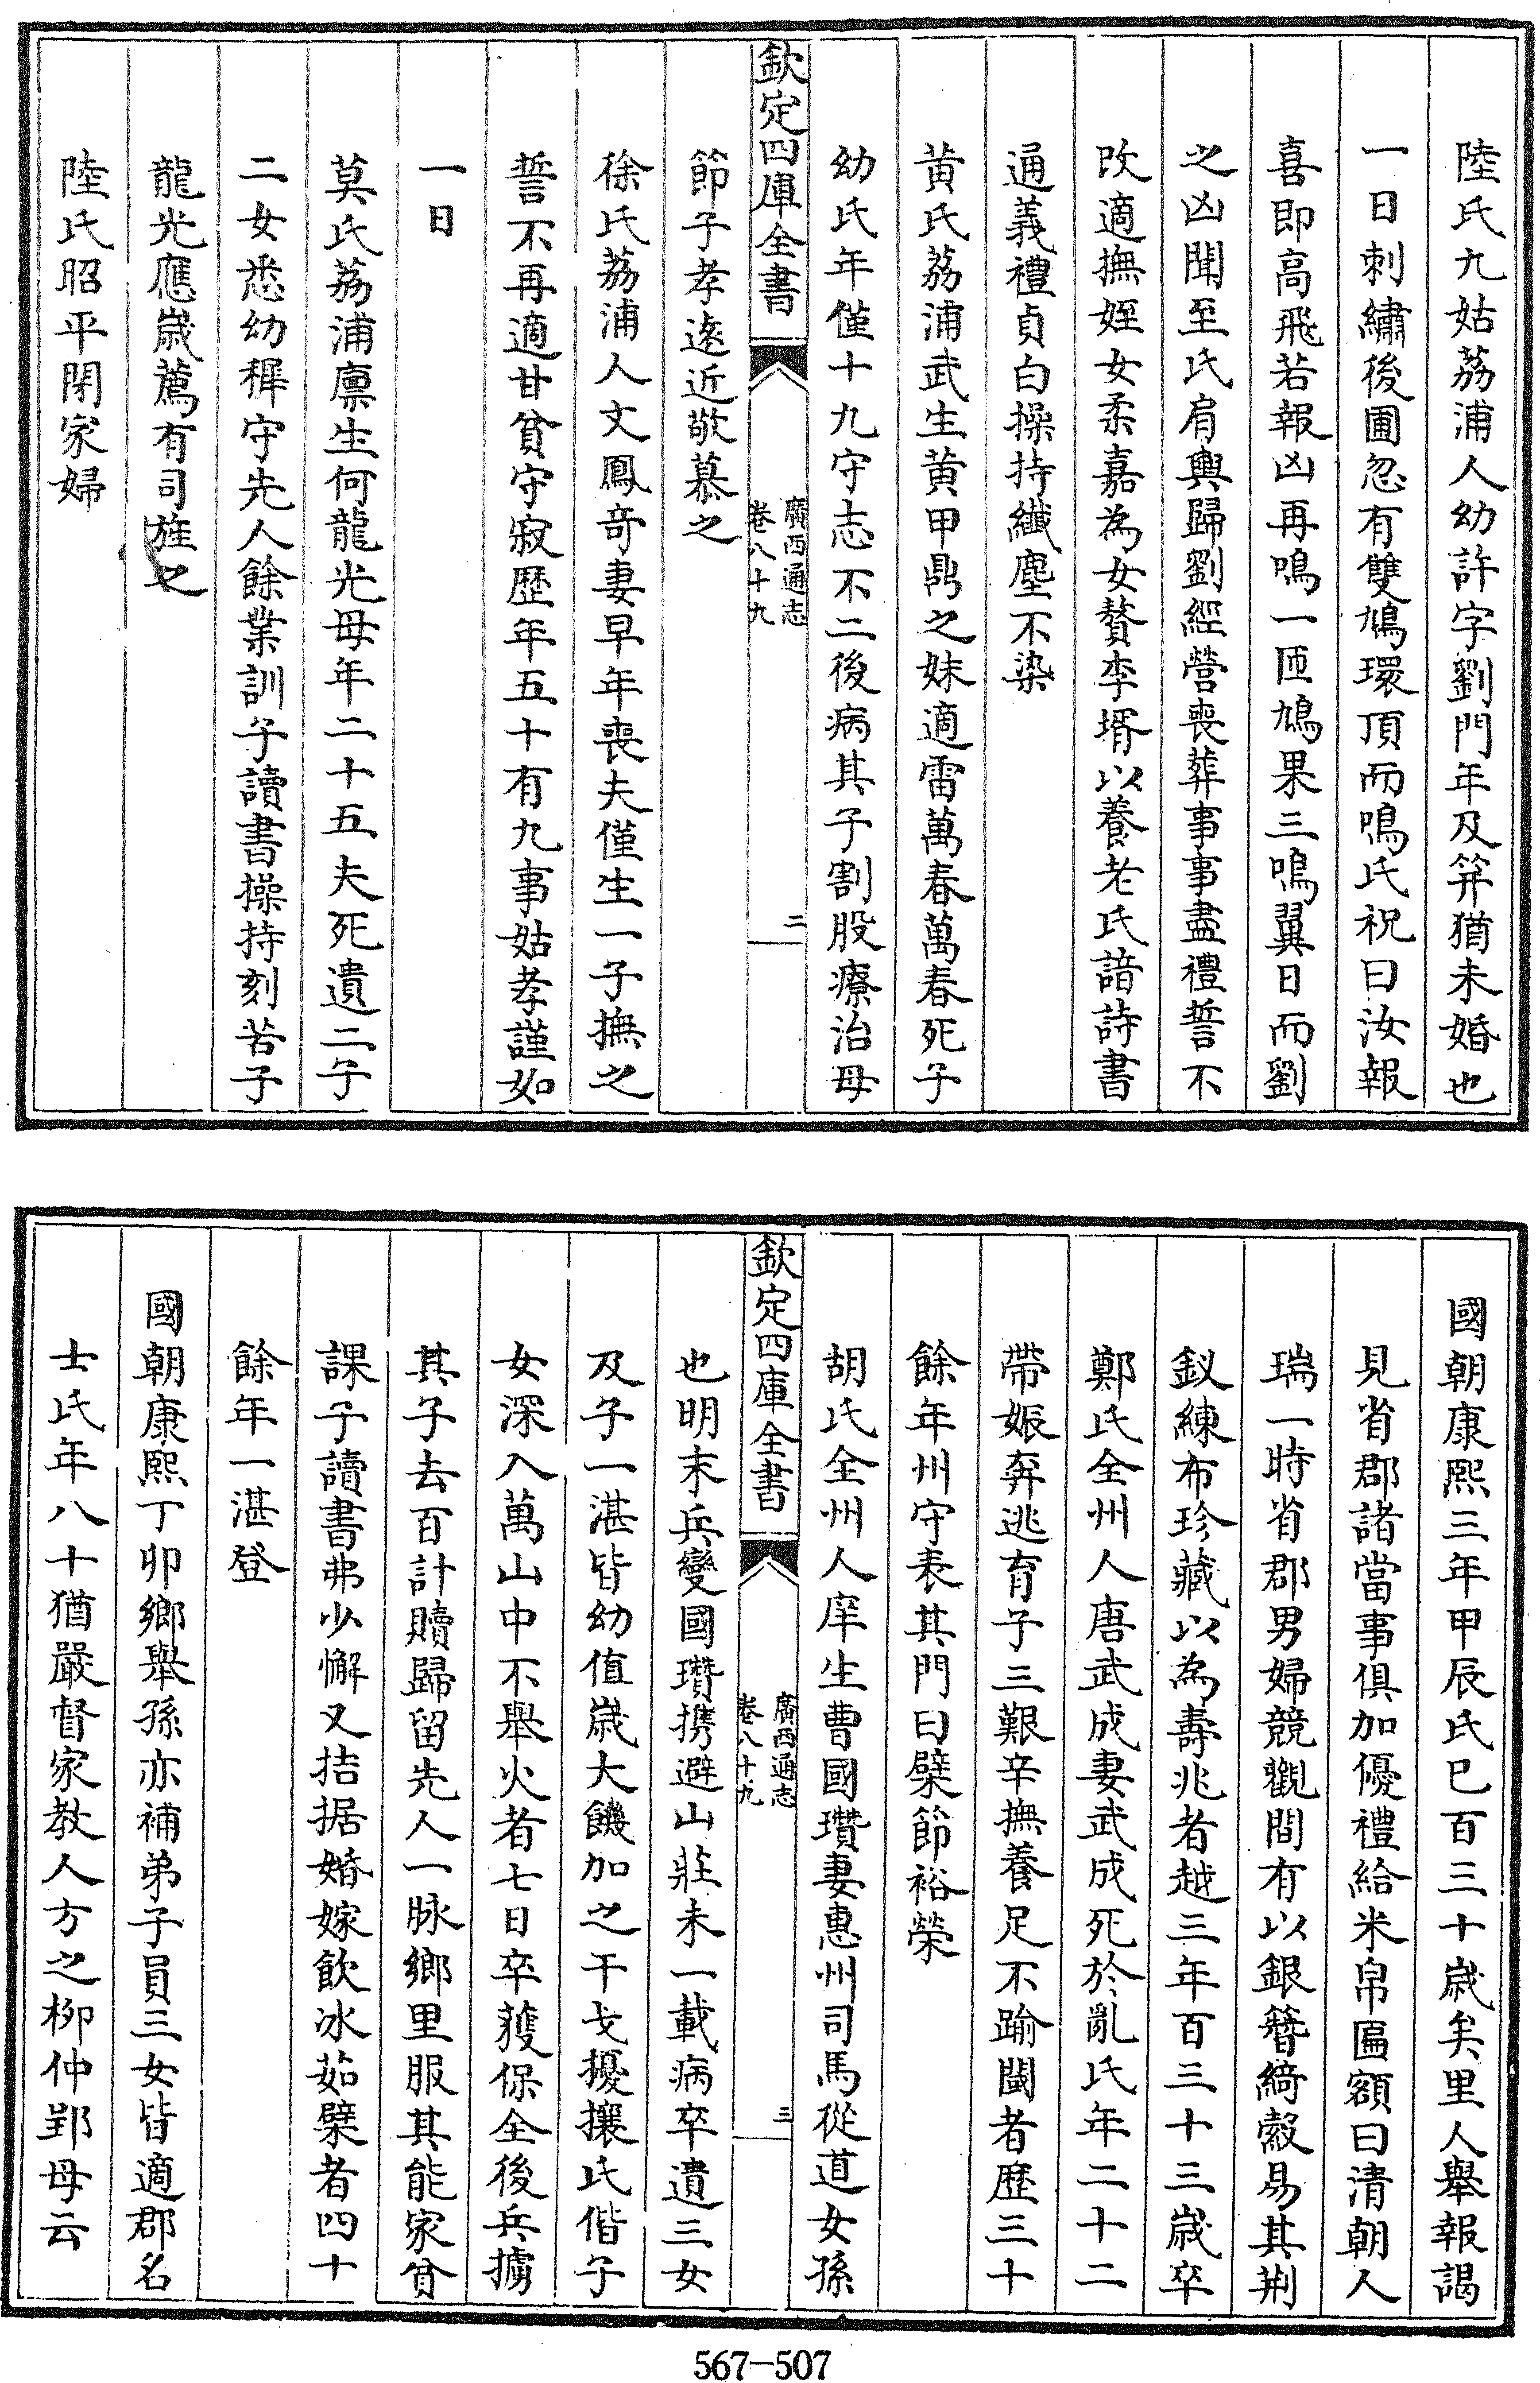 陸氏九姑荔浦人幼許字劉門年及筓猶未婚也
一日刺繡後圃忽有雙鳩環頂而鳴氏祝曰汝報
喜即高飛若報凶再鳴一匝鳩果三鳴翼日而劉
之凶聞至氏肩輿歸劉經營喪葬事事盡禮誓不
改適撫姪女柔嘉為女贅李壻以養老氏諳詩書
通義禮貞白操持纖塵不染
黄氏荔浦武生黄甲鼎之妹適雷萬春萬春死子
幼氏年僅十九守志不二後病其子割股療治母
欽定四庫全書
廣西通志
卷八十九
二
節子孝逺近敬慕之
徐氏荔浦人文鳳竒妻早年喪夫僅生一子撫之
誓不再適甘貧守寂歷年五十有九事姑孝謹如
一日
莫氏荔浦廪生何龍光母年二十五夫死遺二子
二女悉幼穉守先人餘業訓子讀書操持刻苦子
龍光應歲薦有司旌之
陸氏昭平閑家婦
國朝康熙三年甲辰氏已百三十歲矣里人舉報謁
見省郡諸當事俱加優禮給米帛匾額曰清朝人
瑞一時省郡男婦競觀間有以銀簪綺縠易其荆
釵練布珍藏以為夀兆者越三年百三十三歲卒
鄭氏全州人唐武成妻武成死於亂氏年二十二
帶娠奔逃育子三艱辛撫養足不踰閾者歷三十
餘年州守表其門曰檗節裕榮
胡氏全州人庠生曹國瓚妻惠州司馬從道女孫
欽定四庫全書
廣西通志
卷八十九
三
也明末兵變國瓚携避山莊未一載病卒遺三女
及子一湛皆幼值歲大饑加之干戈擾攘氏偕子
女深入萬山中不舉火者七日卒獲保全後兵擄
其子去百計贖歸留先人一脉鄉里服其能家貧
課子讀書弗少懈又拮据婚嫁飲冰茹檗者四十
餘年一湛登
國朝康熙丁卯鄉舉孫亦補弟子員三女皆適郡名
士氏年八十猶嚴督家教人方之柳仲郢母云
567-507